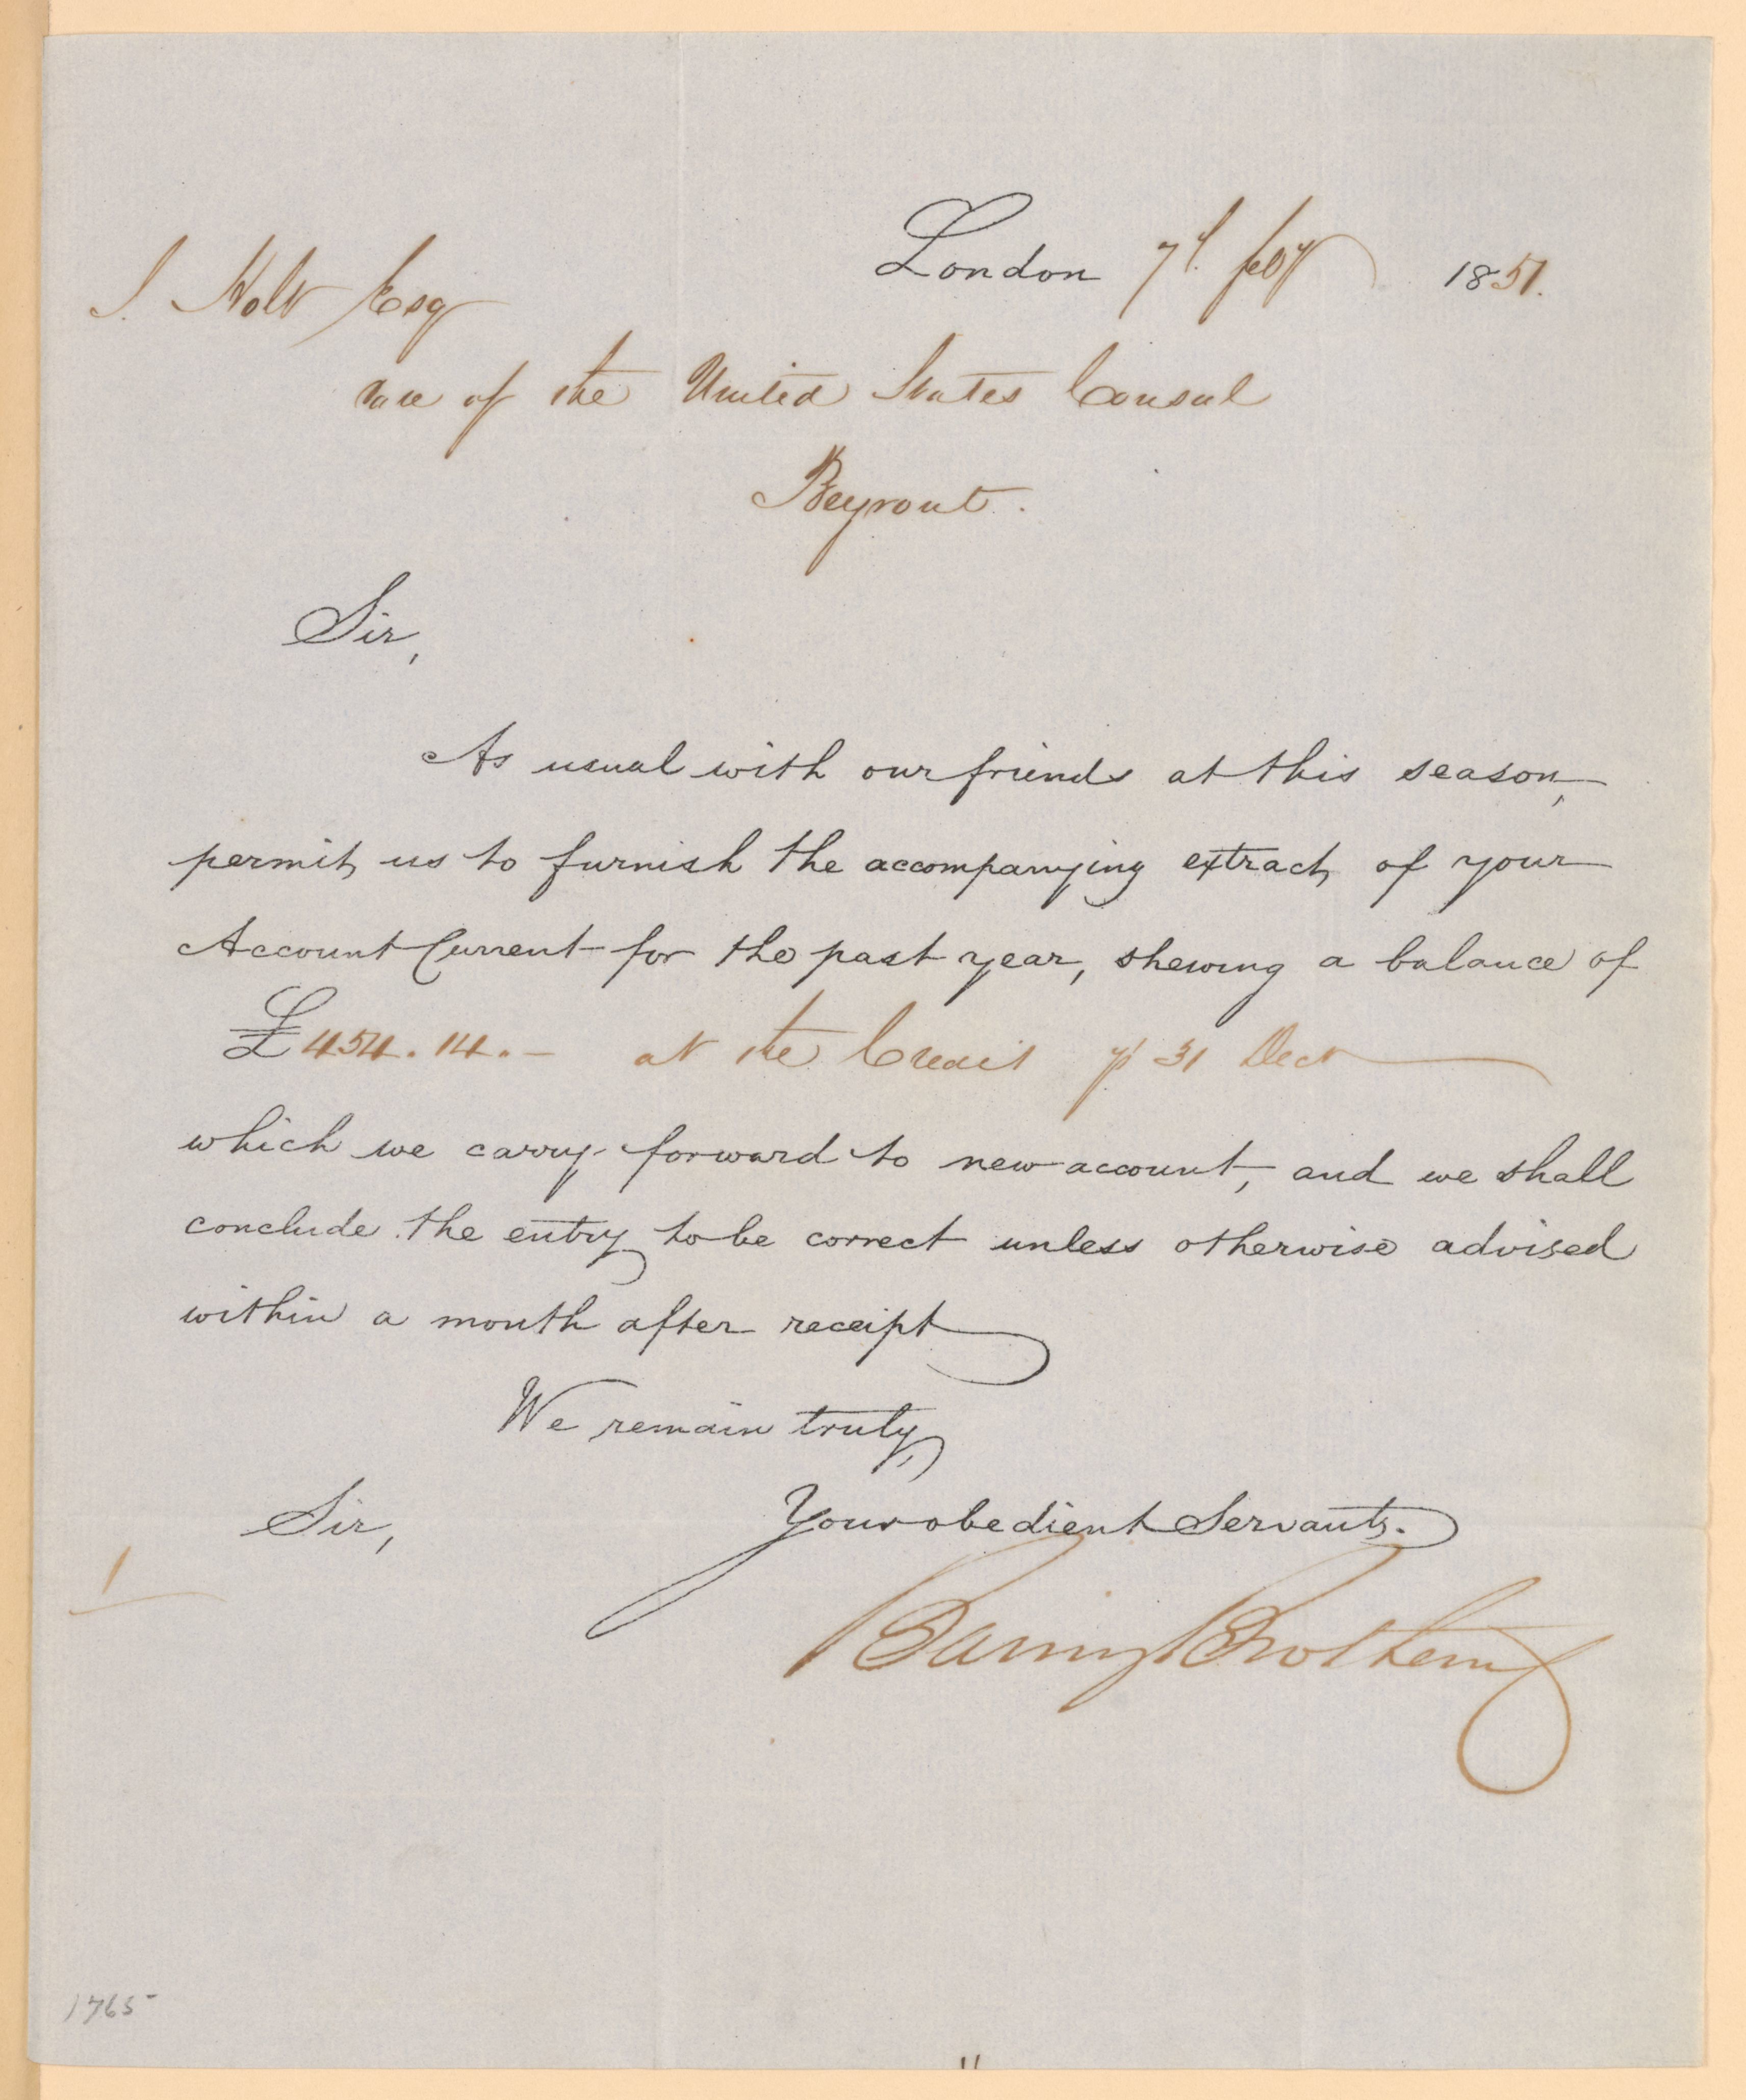 London 7th Feby 1851.
J. Holt Esq
Care of the United States Consul
Beyrout.
Sir,
As usual with our friends at this season,
permit us to furnish the accompanying extract of your
Account Current for the past year, shewing a balance of
£454.14.- at the Credit p 31 Decr
which we carry forward to new account, and we shall
conclude the entry to be correct unless otherwise advised
within a month after receipt
We remain truly,
Sir, Your obedient Servants.
Baring Brothers
1765
11